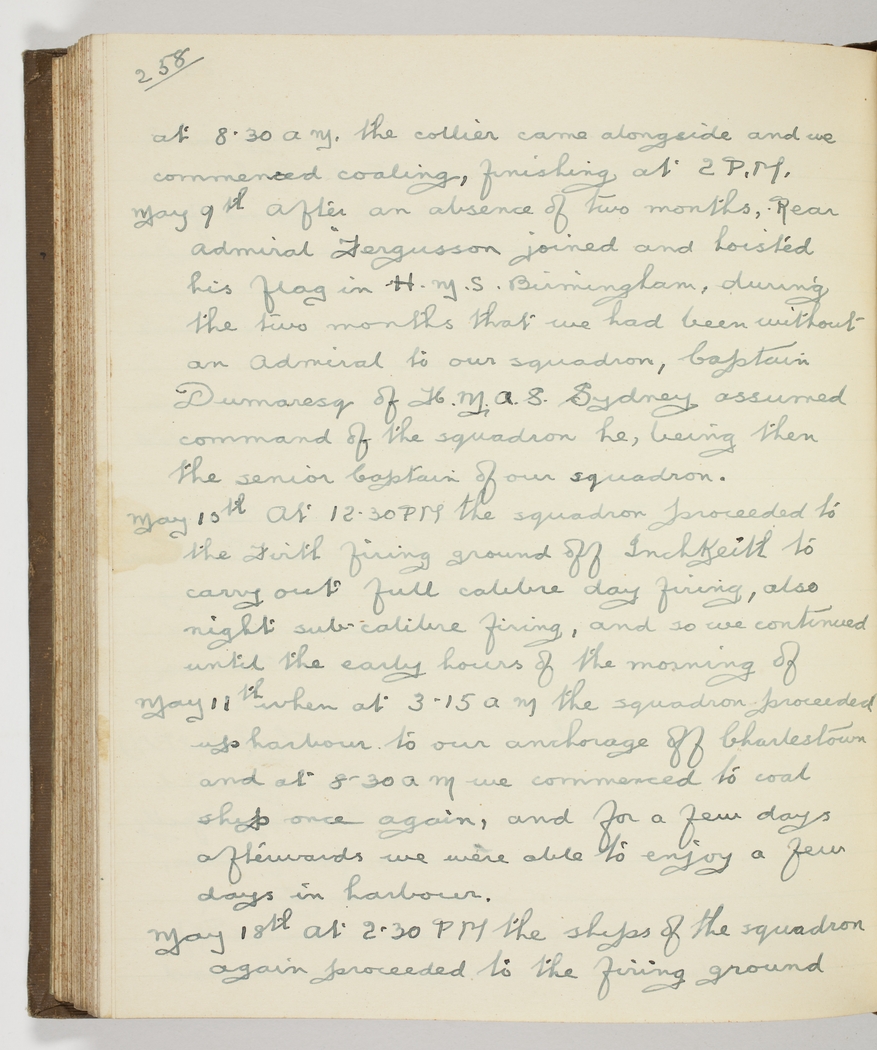 258
at 8·30 a m. the collier came alongside and we
commenced coaling, finishing at 2 P.M.
May 9th After an absence of two months, Rear
Admiral Fergusson joined and hoisted
his flag in H.M.S. Birmingham, during
the two months that we had been without
an Admiral to our squadron, Captain
Dumaresq of H.M.A.S. Sydney assumed
command of the squadron he, being then
the senior Captain of our squadron.
May 10th At 12·30 PM the squadron proceeded to
the Firth firing ground off InchKeith to
carry out full calibre day firing, also
night sub-calibre firing, and so we continued
until the early hours of the morning of
May 11th when at 3-15 a m the squadron proceeded
up harbour to our anchorage off Charlestown
and at 8-30 a m we commenced to coal
ship once again, and for a few days
afterwards we were able to enjoy a few
days in harbour.
May 18th At 2·30 PM the ships of the squadron
again proceeded to the firing ground